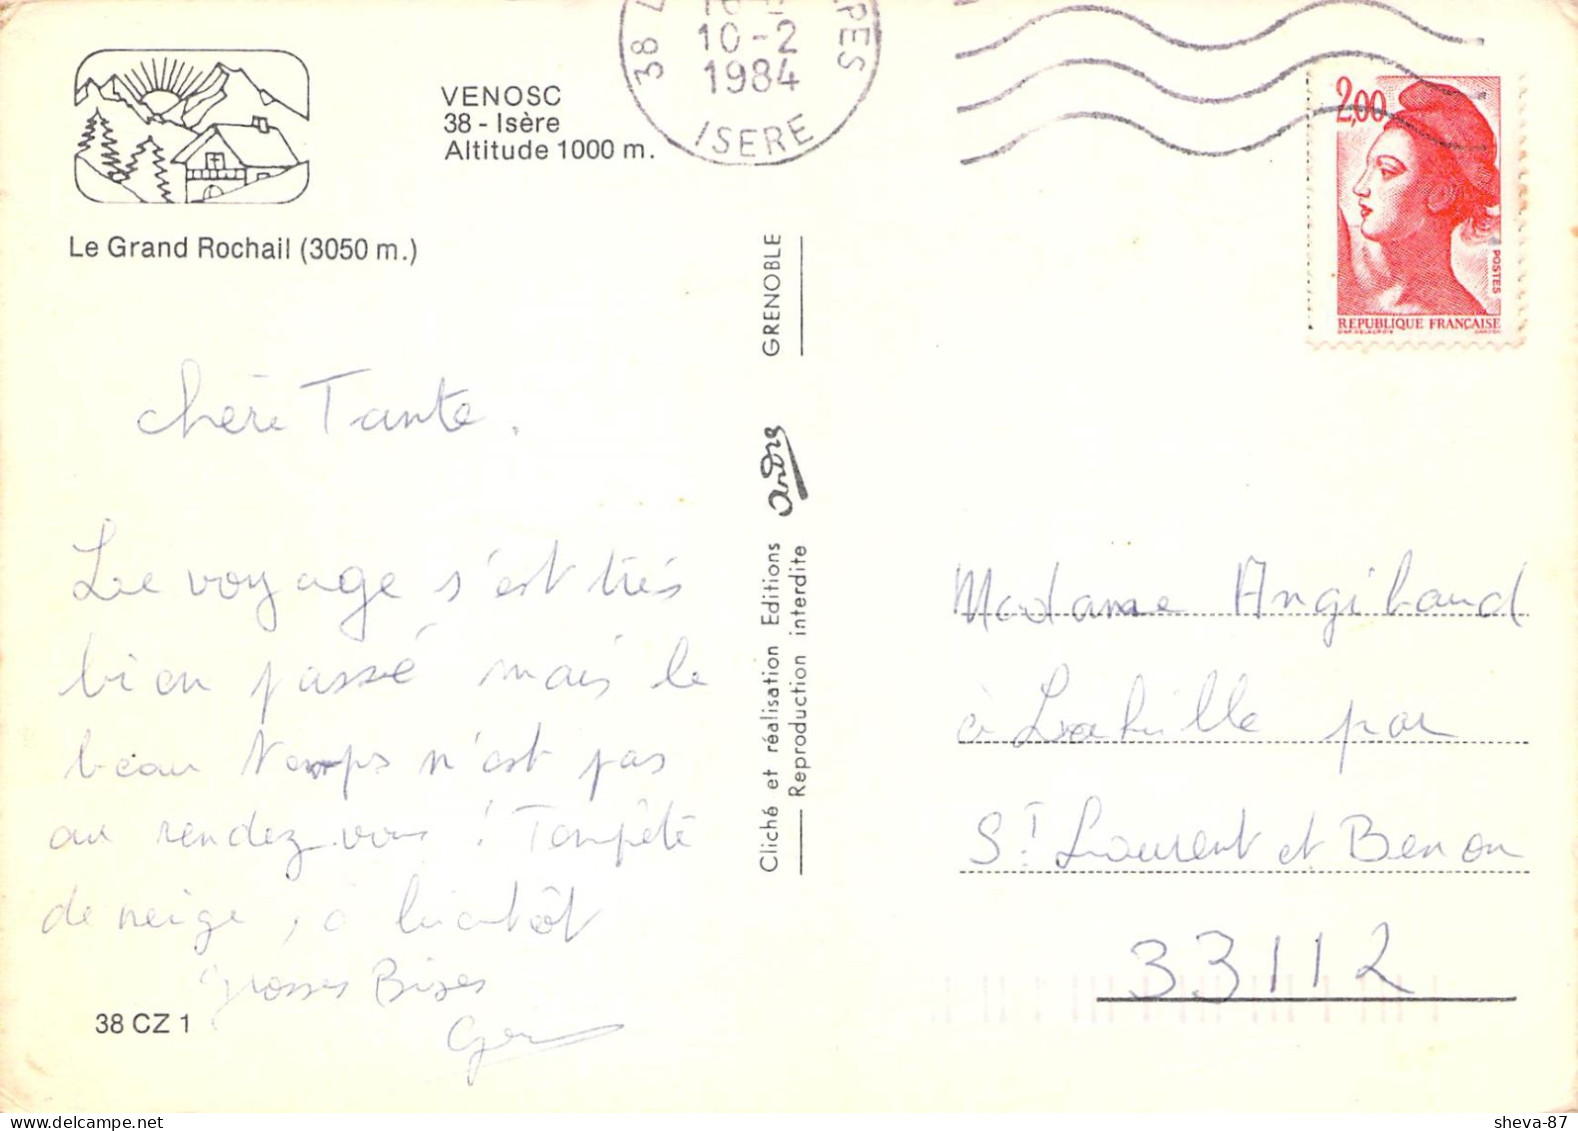 VENOSC
38 - Isère
Altitude 1000 m.
Le Grand Rochail (3050 m.)
chère Tante.
Le voyage s'est très
bien passé mais le
beau temps n'est pas
au rendez vous ! Tempête
de neige, à bientôt
grosses Bises
38 CZ 1
Cliché et réalisation Editions
GRENOBLE
Reproduction interdite
38
PES
10-2
1984
ISERE
2,00
POSTES
REPUBLIQUE FRANÇAISE
Madame Angibaud
à Lahille par
St Laurent et Benon
33112
sheva-87